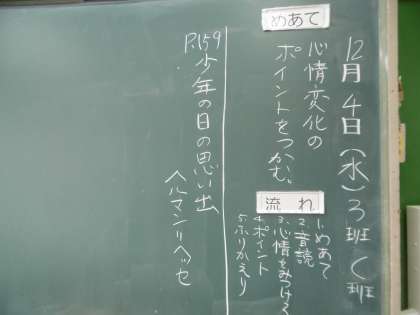 12月4日(水)3班 C班
めあて
心情変化の
ポイントをつかむ。
流れ
1.めあて
2.音読
3.心情をみつける
4.ポイント
5.ふりかえり
P.159 少年の日の思い出
ヘルマン・ヘッセ